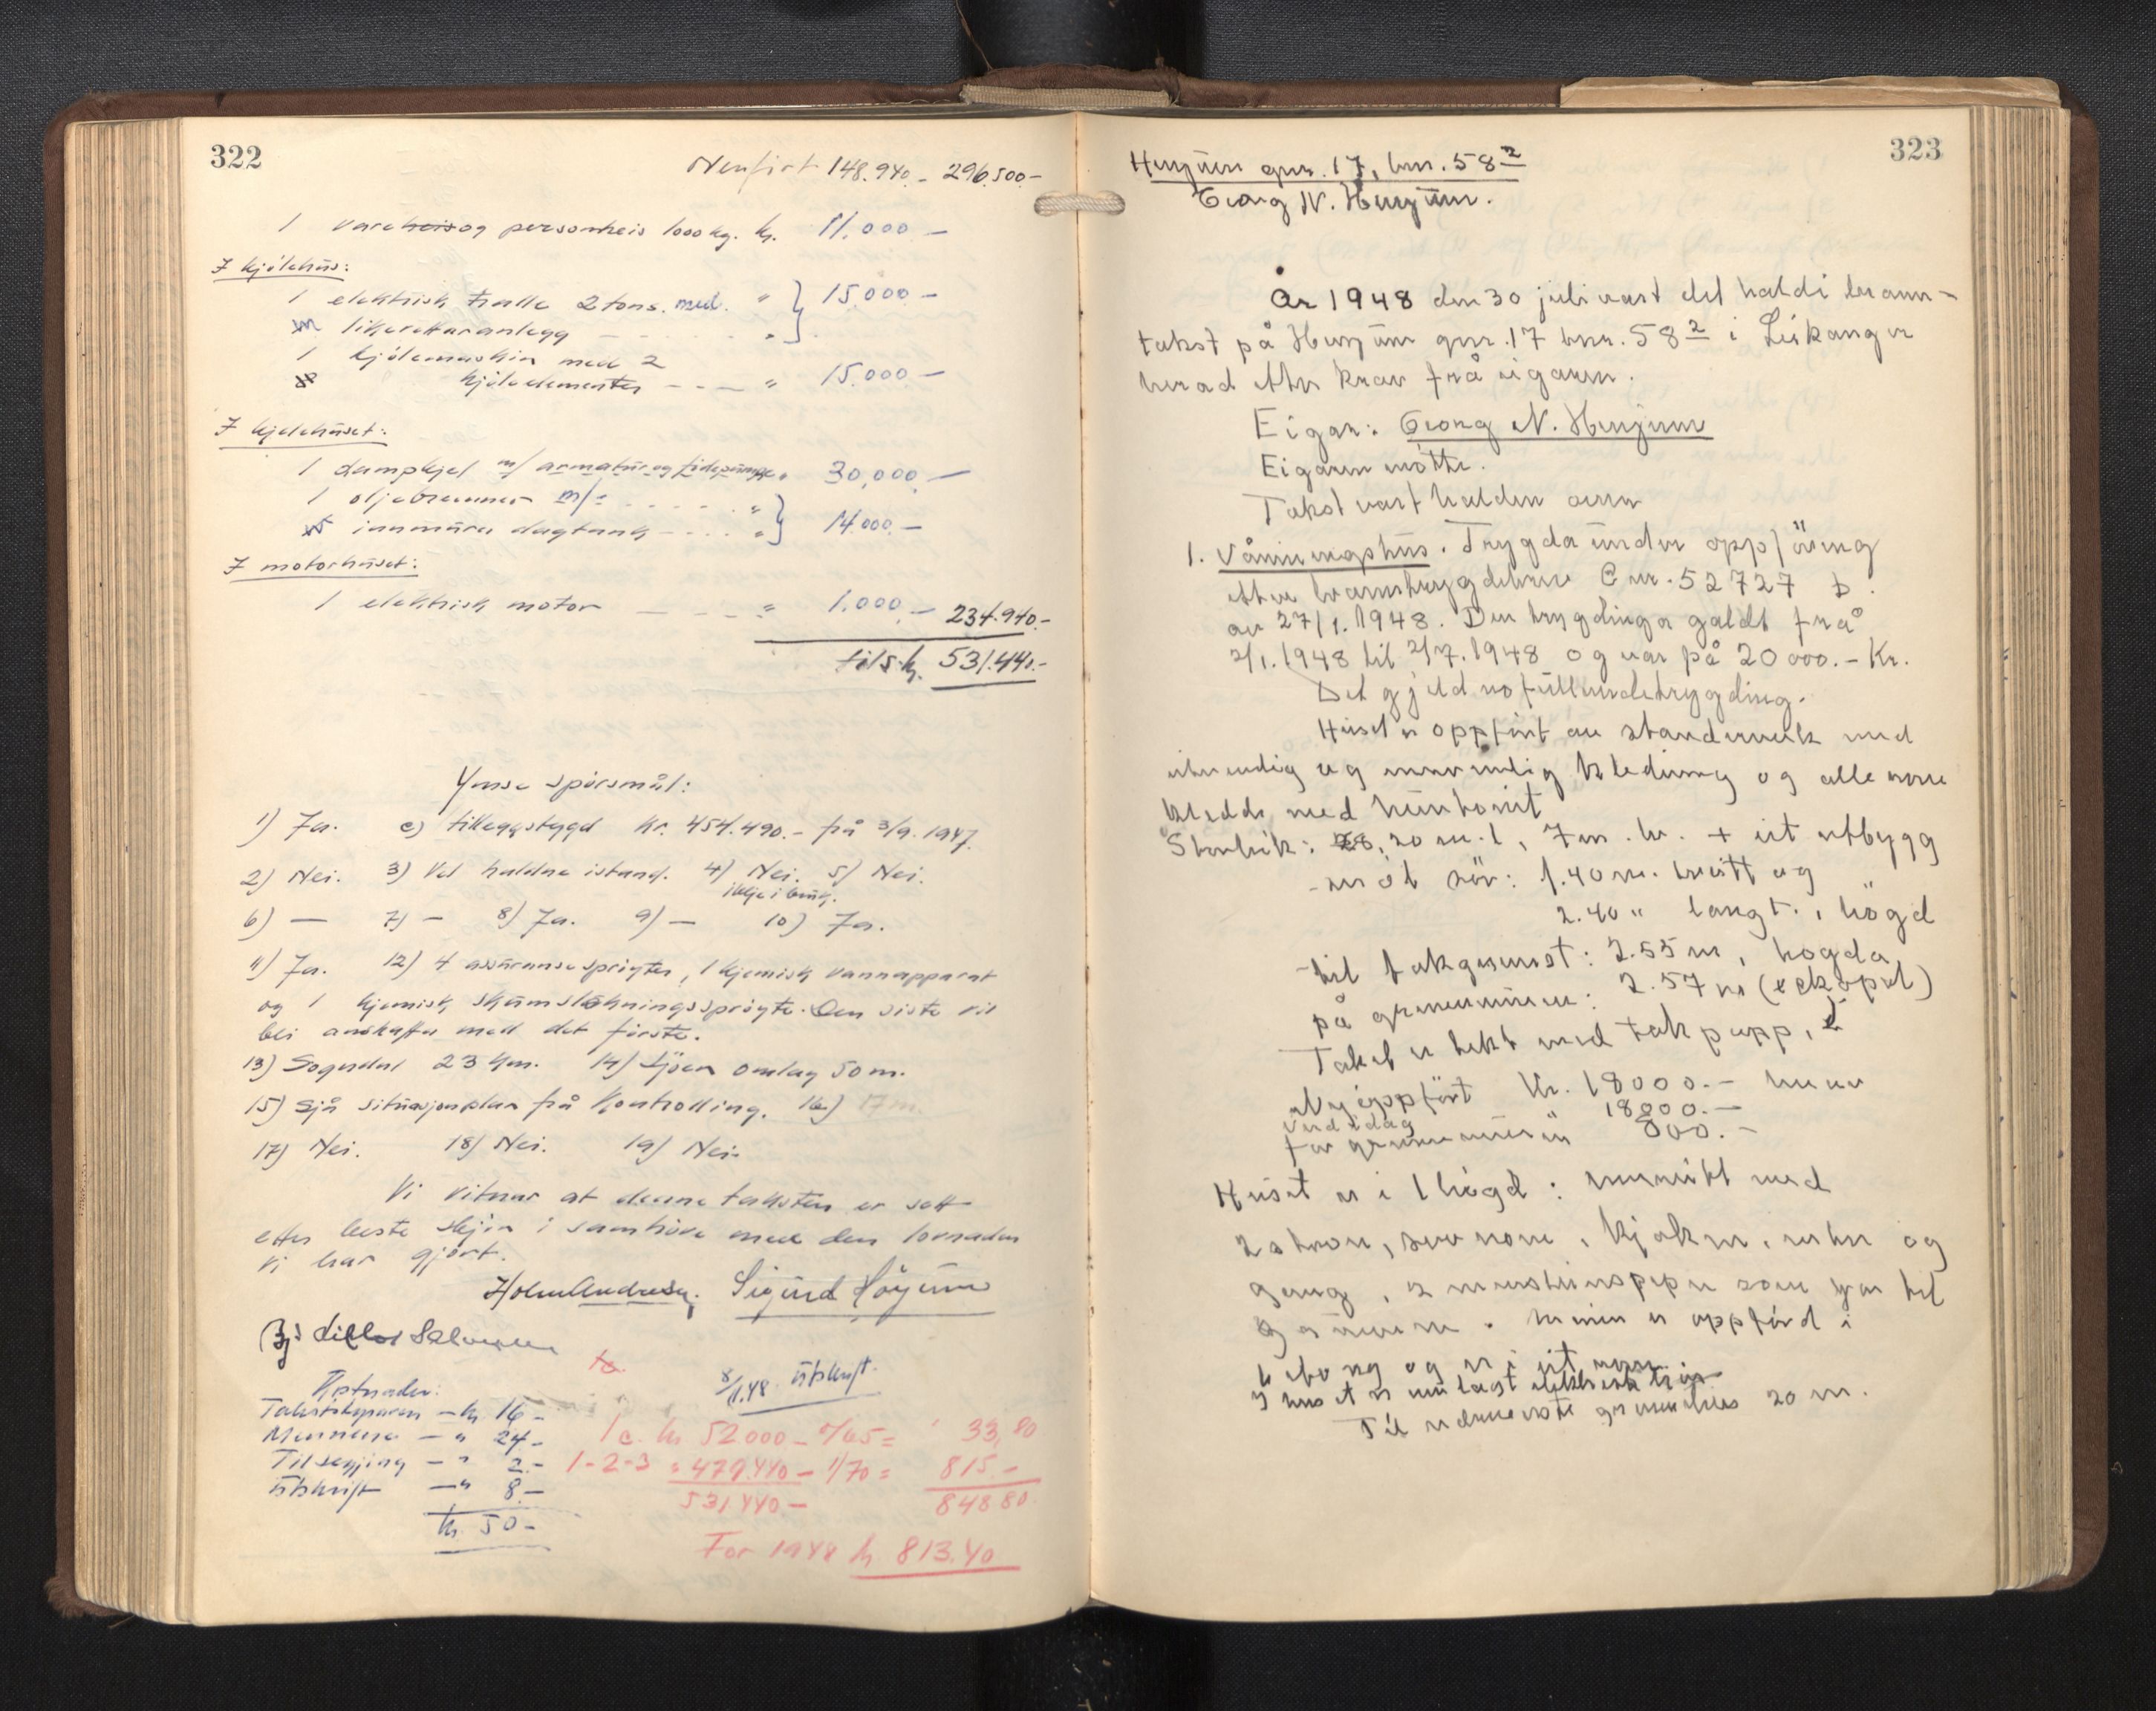 322
148.940.- 296.500.-
1 vareheis og personheis 1000 kg. kr. 11.000 -
I kjölehus:
1 elektrisk tralle 2 tons. med " } 15.000 -
likerettaranlegg - - - - - "
1 kjölemaskin med 2
kjöleelementer - - - " 15.000 -
I kjelehuset:
1 dampkjel m/ armatur og födepumpe " 30,000.-
1 oljebrenner m/ - - - - - "
innmura dagtank - - - - " } 14.000.-
I motorhuset:
1 elektrisk motor - - - " 1.000.- 234.940.-
tils. kr. 531.440.-
Ymse spörsmål:
1) Ja. c) tilleggstrygd kr. 454.490.- på 3/9.1947.
2) Nei. 3) Vel haldne istand. 4) Nei. 5) Nei.
ikkje i bruk.
6) — 7) — 8) Ja. 9) — 10) Ja.
11) Ja. 12) 4 assuransespröyter, 1 kjemisk vannapparat
og 1 kjemisk skumslökningsspröyte. Den siste vil
bli anskaffa med det förste.
13) Sogndal 23 km. 14) Sjöen omlag 50 m.
15) Sjå situasjonsplan frå Kontrolling. 16) 17 m.
17) Nei. 18) Nei. 19) Nei.
Vi vitnar at denne taksten er sett
etter beste skjön i samhöve med den
vi har gjort.
Sigurd Höyum
Takstskjönn - kr. 16 -
Mennene - " 24 -
Tilsegjing - " 2.-
Utskrift - " 8.-
kr. 50 -
8/11.48. Utskrift.
1 c. kr 52000 - = 33,80
1-2-3 " 479.440 - 1/70 = 815.-
531.440 - 848 80
For 1948 kr 813.40
323
Henjum gnr. 17, bnr. 58²
Georg N. Henjum.
År 1948 den 30 juli vart det haldi brann-
takst på Henjum gnr. 17 bnr. 58² i Leikanger
herad etter krav frå eigaren.
Eigar: Georg N. Henjum
Eigaren mötte.
Takst vart halden over
1. Våningshus. Trygda under oppföring
etter branntrygdebrev C nr. 52727 D.
av 27/1.1948. Den trygdinga galdt frå
2/1.1948 til 2/7.1948 og var på 20 000.- Kr.
Det gjeld no fullverdetrygding.
Huset er oppfört av standerverk med
utvendig og innvendig kledning og alle rom
kledde med huntonit
Storleik: 8,20 m. l, 7 m. br. + eit utbygg
mot sör: 1.40 m. breitt og
2.40 " langt, högd
til takgesimst: 2.55 m, högda
på grunnmuren: 2.57 m
Taket er tekt med takpapp,
Nyoppfört Kr. 18000.- herav
Verd i dag 18000.-
for grunnmuren 800.-
Huset er i 1 högd: innreidt med
2 stover, soverom, kjöken, entre og
gang, 2 murstinspiper som går til
grunnen. Muren er oppförd i
betong og er i eit rom
I huset er innlagt elektrisk
Til næraste grannehus 20 m.